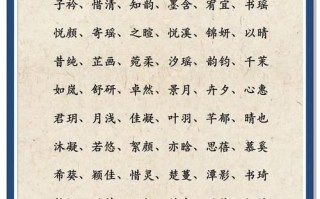 子衿、惜清、知韵、墨含、宥宜、书瑶
悦颜、寄瑶、之暄、悦溪、锦妍、以晴
昔纯、芷画、菀柔、汐瑶、韵钧、千茉
如岚、舒研、卓然、景月、卉夕、心惠
君玥、月浅、佳凝、叶羽、芊郁、晴也
沐凝、若悠、絮颜、亦晗、思蓓、慕奚
希葵、颖佳、惜灵、楚蔓、潭影、书琦